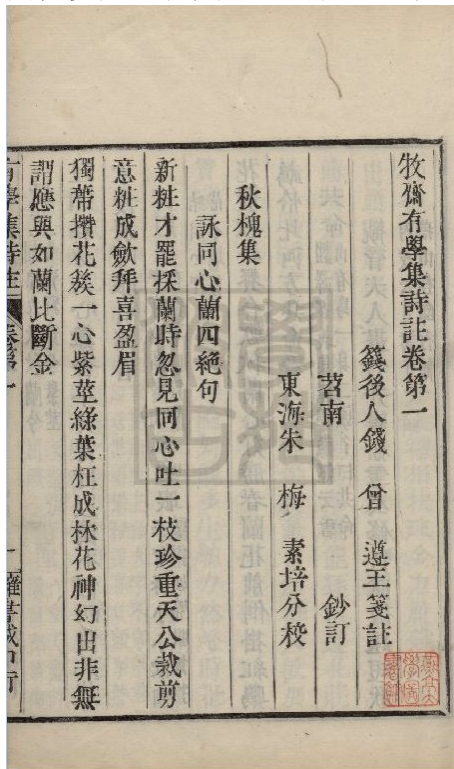 牧齋有學集詩註卷第一
籛後人錢 曾 遵王箋註
苕南 鈔訂
東海朱 梅 素培分校
秋槐集
詠同心蘭四絕句
新粧才罷採蘭時忽見同心吐一枝珍重天公裁剪
意粧成斂拜喜盈眉
獨蔕攢花簇一心紫莖綠葉枉成林花神幻出非無
謂應與如蘭比斷金
有學集詩註 卷第一